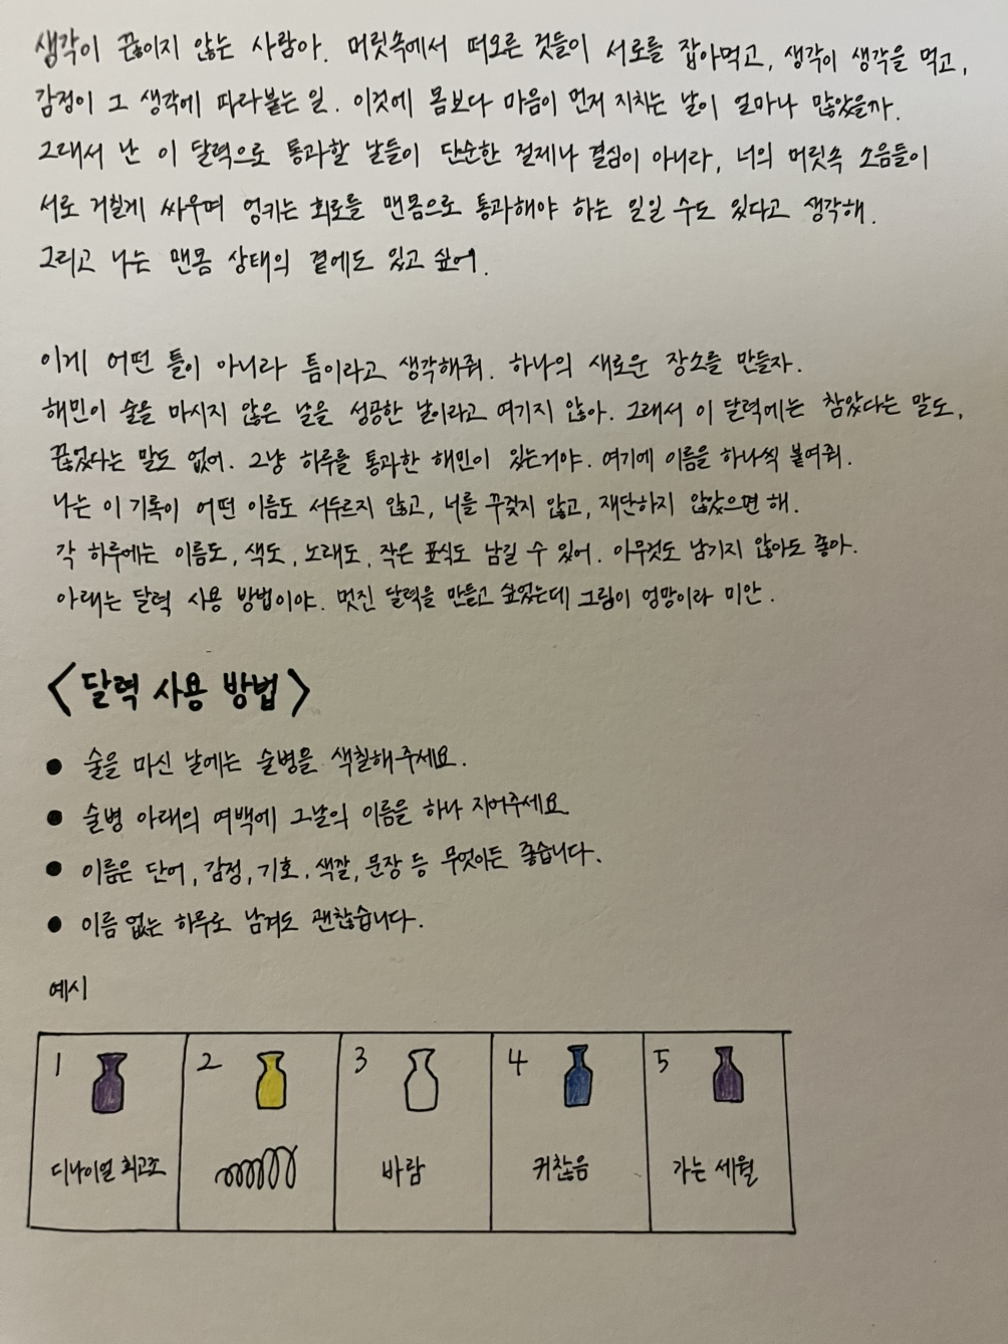 생각이 끊이지 않는 사람아. 머릿속에서 떠오른 것들이 서로를 잡아먹고, 생각이 생각을 먹고,
감정이 그 생각에 따라붙는 일. 이것에 몸보다 마음이 먼저 지치는 날이 얼마나 많았을까.
그래서 난 이 달력으로 통과할 날들이 단순한 절제나 결심이 아니라, 너의 머릿속 소음들이
서로 거칠게 싸우며 엉키는 회로를 맨몸으로 통과해야 하는 일일 수도 있다고 생각해.
그리고 나는 맨몸 상태의 곁에도 있고 싶어.
이게 어떤 틀이 아니라 틈이라고 생각해줘. 하나의 새로운 장소를 만들자.
해민이 술을 마시지 않은 날을 성공한 날이라고 여기지 않아. 그래서 이 달력에는 참았다는 말도,
끊었다는 말도 없어. 그냥 하루를 통과한 해민이 있는거야. 여기에 이름을 하나씩 붙여줘.
나는 이 기록이 어떤 이름도 서두르지 않고, 너를 꾸짖지 않고, 재단하지 않았으면 해.
각 하루에는 이름도, 색도, 노래도, 작은 표식도 남길 수 있어. 아무것도 남기지 않아도 좋아.
아래는 달력 사용 방법이야. 멋진 달력을 만들고 싶었는데 그림이 엉망이라 미안.
<달력 사용 방법>
● 술을 마신 날에는 술병을 색칠해주세요.
● 술병 아래의 여백에 그날의 이름을 하나 지어주세요
● 이름은 단어, 감정, 기호, 색깔, 문장 등 무엇이든 좋습니다.
● 이름 없는 하루로 남겨도 괜찮습니다.
예시
1 2 3 4 5
디나이얼 최고조 바람 귀찮음 가는 세월